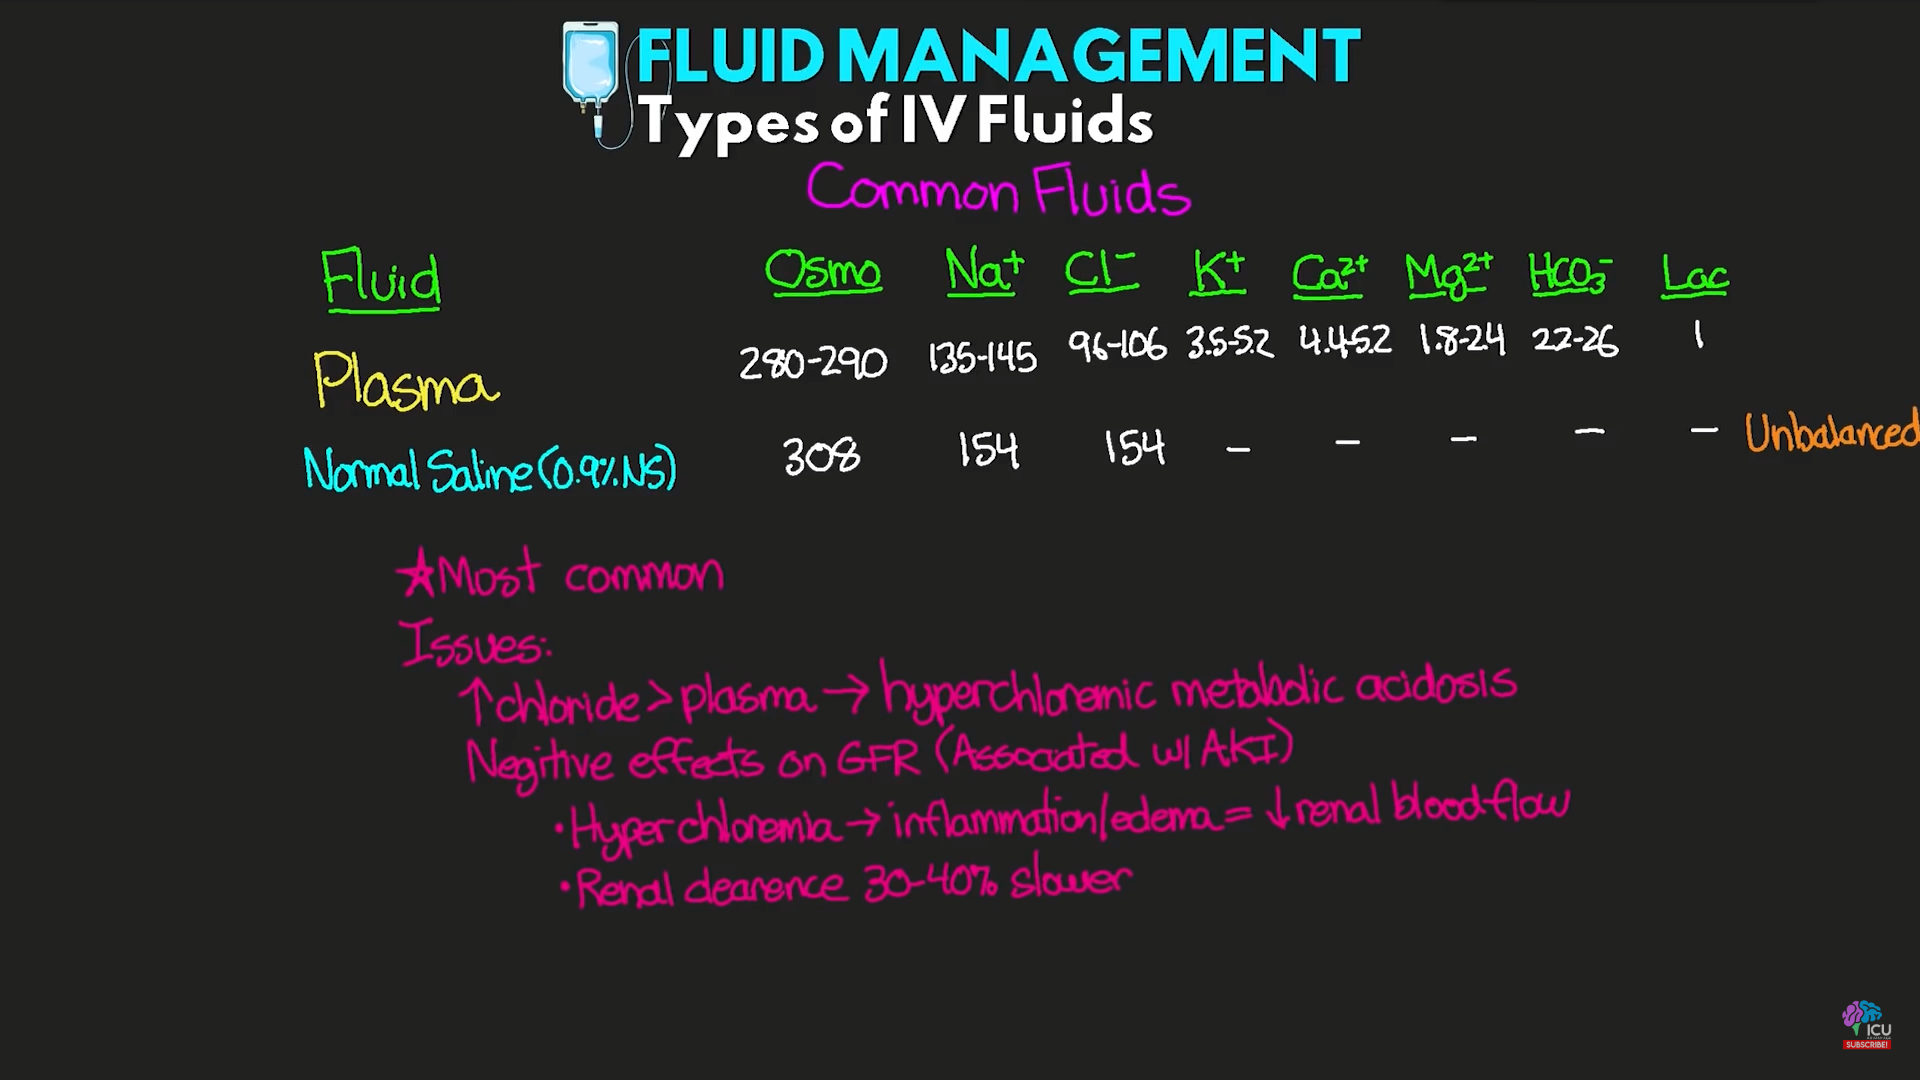 FLUID MANAGEMENT
Types of IV Fluids
Common Fluids
Fluid Osmo Na+ Cl- K+ Ca2+ Mg2+ HCO3- Lac
Plasma 280-290 135-145 96-106 3.5-5.2 4.4-5.2 1.8-2.4 22-26 1
Normal Saline (0.9% NS) 308 154 154 - - - - - Unbalanced
★Most common
Issues:
↑chloride > plasma → hyperchloremic metabolic acidosis
Negitive effects on GFR (Associated w/ AKI)
• Hyperchloremia → inflammation/edema = ↓ renal blood flow
• Renal clearence 30-40% slower
ICU
SUBSCRIBE!